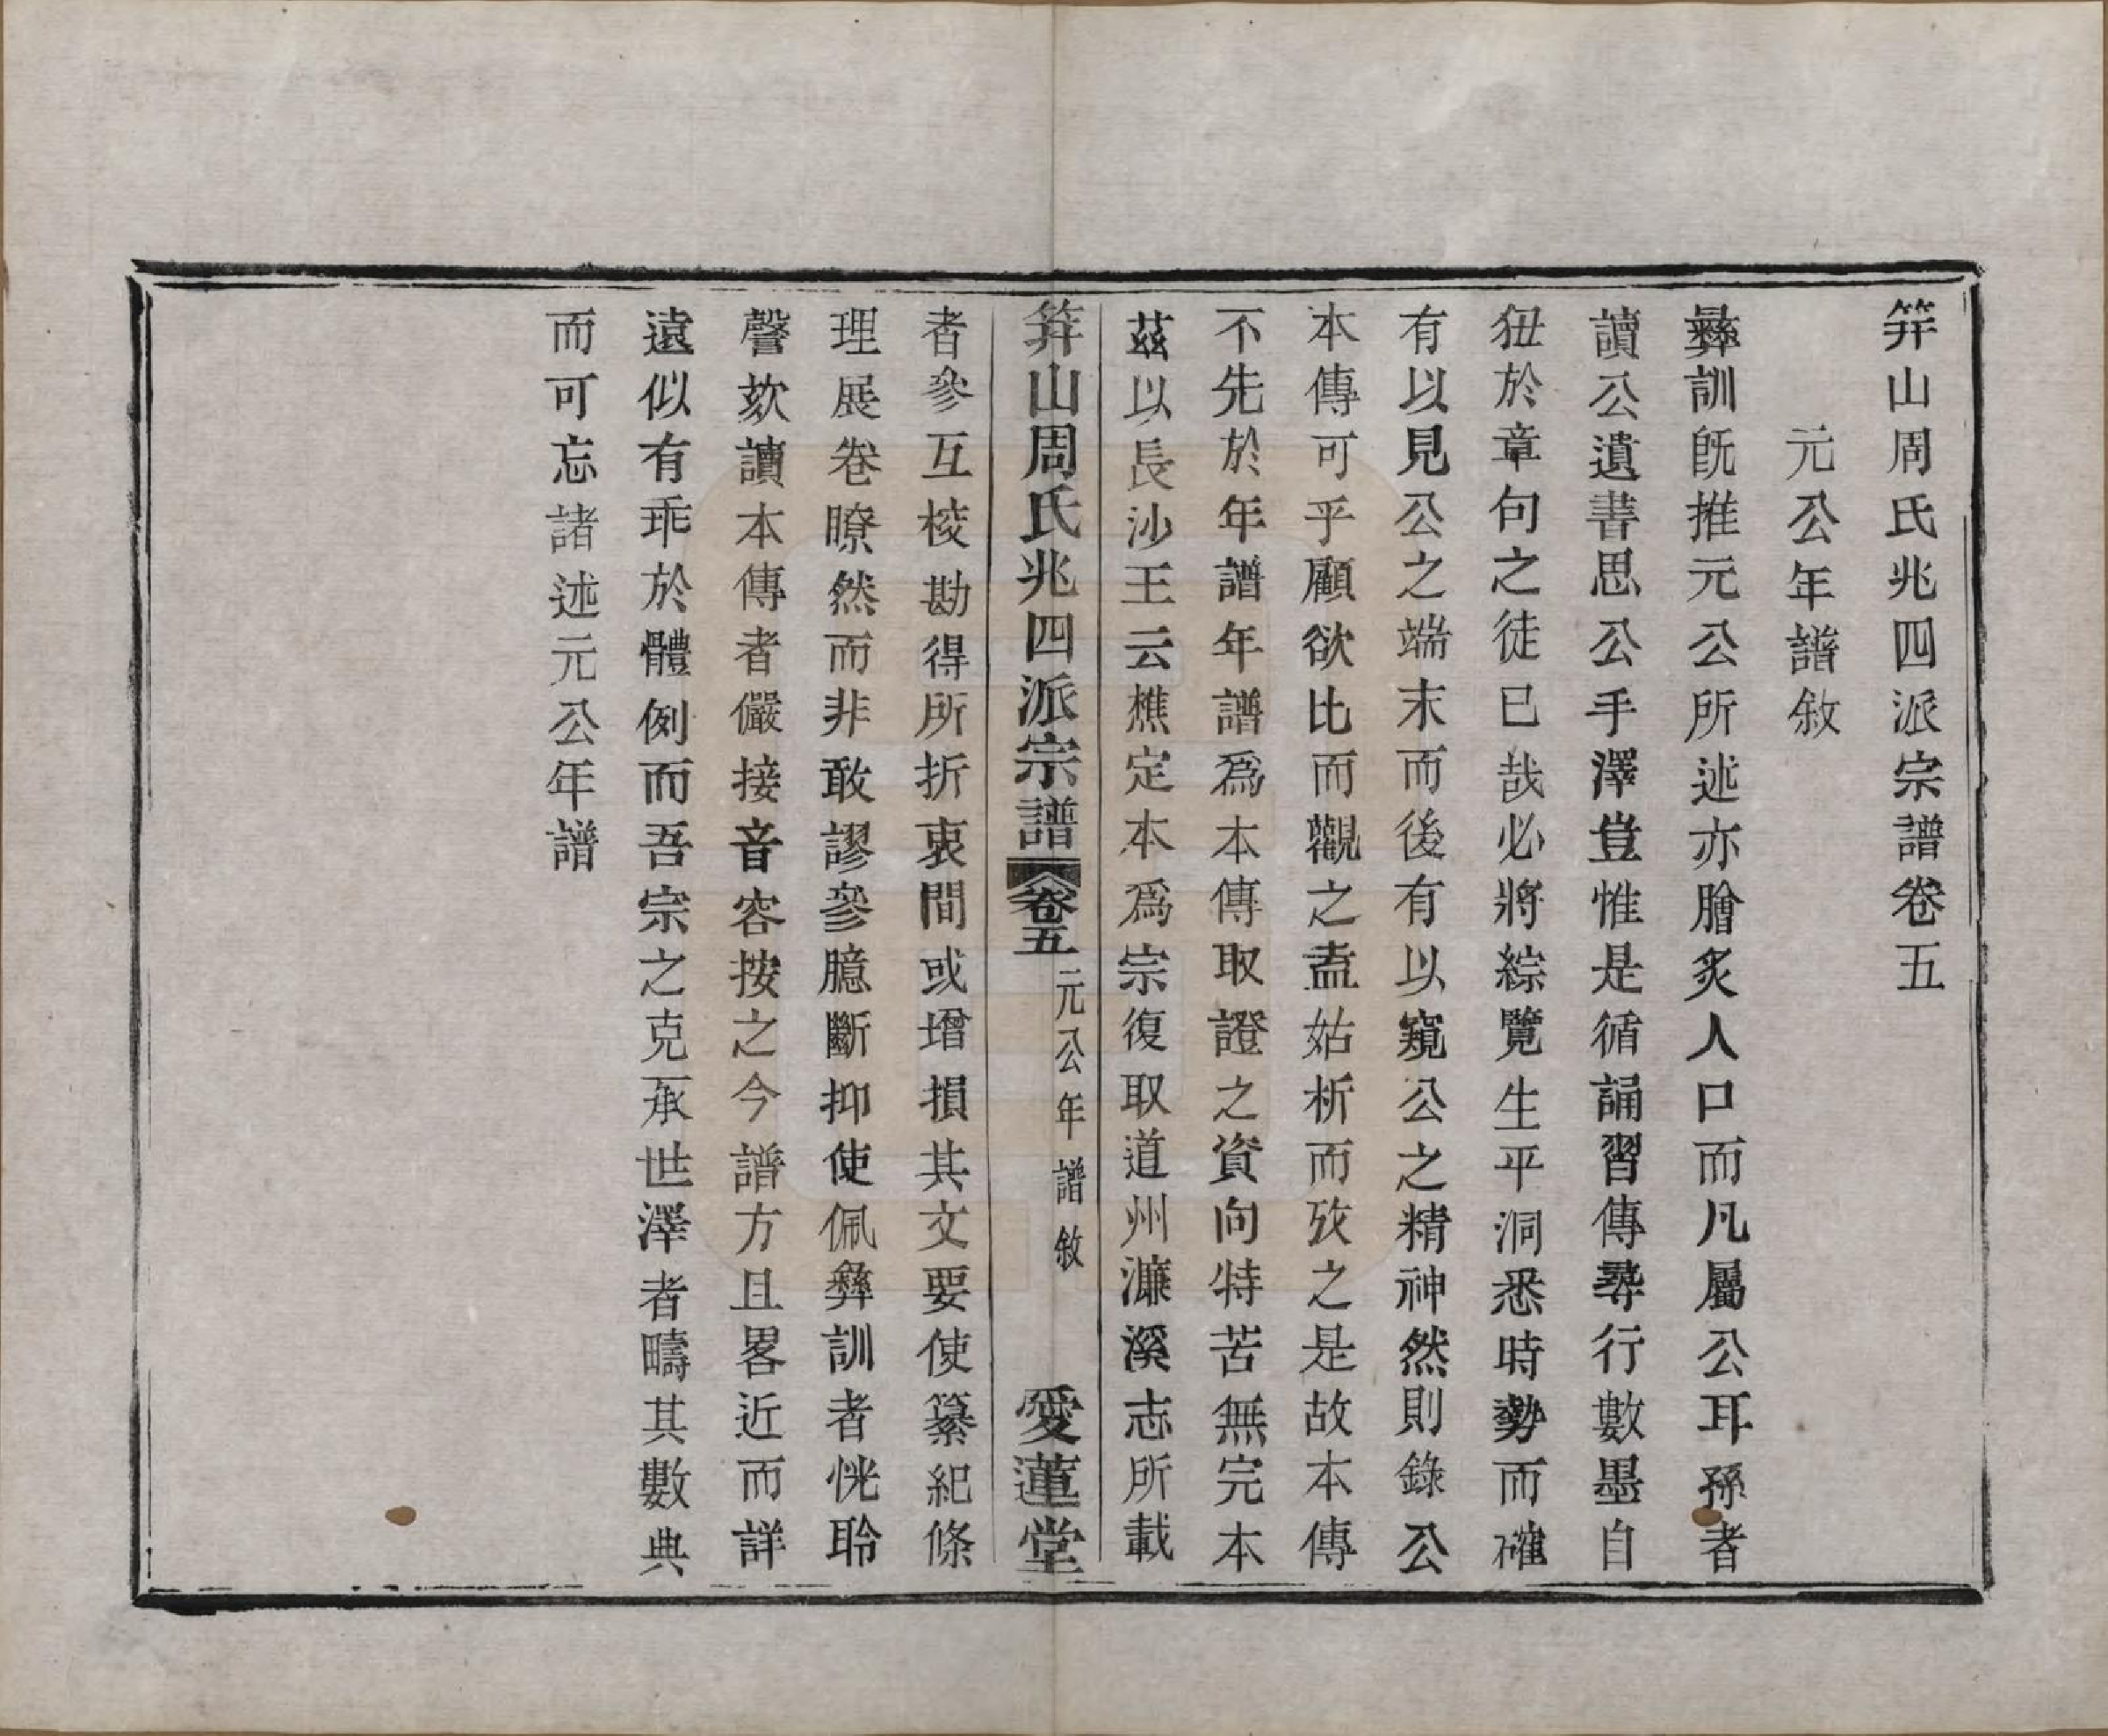 笄山周氏兆四派宗譜卷五
元公年譜敘
彝訓旣推元公所述亦膾炙人口而凡屬公耳孫者
讀公遺書思公手澤豈惟是循誦習傳尋行數墨自
狃於章句之徒已哉必將綜覽生平洞悉時勢而確
有以見公之端末而後有以窺公之精神然則錄公
本傳可乎顧欲比而觀之盍姑析而攷之是故本傳
不先於年譜年譜爲本傳取證之資向特苦無完本
茲以長沙王云樵定本爲宗復取道州濂溪志所載
笄山周氏兆四派宗譜 卷五 元公年譜敘 愛蓮堂
者參互棱勘得所折衷間或增損其文要使纂紀條
理展卷瞭然而非敢謬參臆斷抑使佩彝訓者恍聆
謦欬讀本傳者儼接音容按之今譜方且畧近而詳
遠似有乖於體例而吾宗之克承世澤者疇其數典
而可忘諸述元公年譜